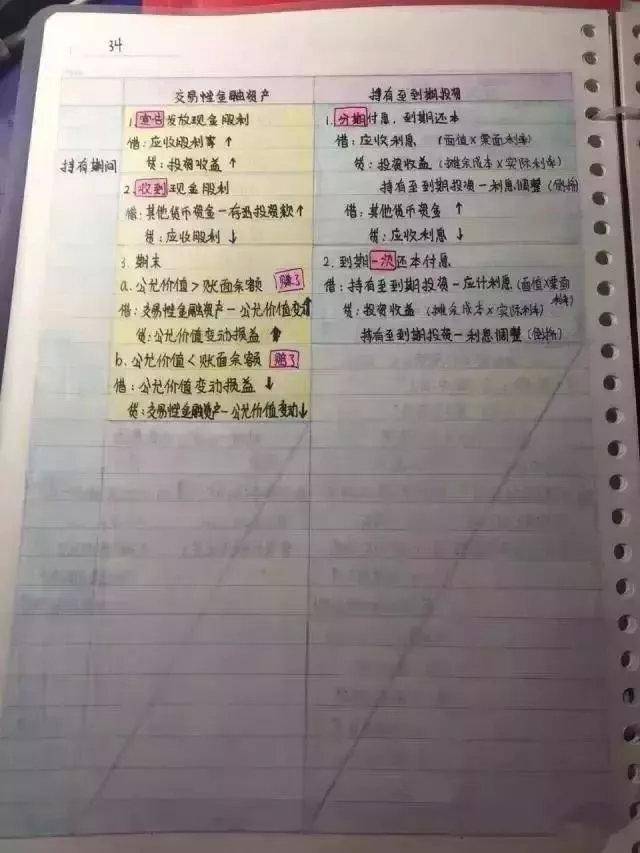 34
交易性金融资产
持有至到期投资
持有期间
1.宣告发放现金股利
借:应收股利 ↑
贷:投资收益 ↑
2.收到现金股利
借:其他货币资金-存出投资款↑
贷:应收股利 ↓
3.期末
a.公允价值>账面余额 赚了
借:交易性金融资产-公允价值变动↑
贷:公允价值变动损益 ↑
b.公允价值<账面余额 赔了
借:公允价值变动损益 ↓
贷:交易性金融资产-公允价值变动↓
1.分期付息,到期还本
借:应收利息 (面值×票面利率)
贷:投资收益 (摊余成本×实际利率)
持有至到期投资-利息调整(倒挤
借:其他货币资金 ↑
贷:应收利息 ↓
2.到期一次还本付息
借:持有至到期投资-应计利息(面值×票面利率)
贷:投资收益 (摊余成本×实际利率)
持有至到期投资-利息调整(倒挤)